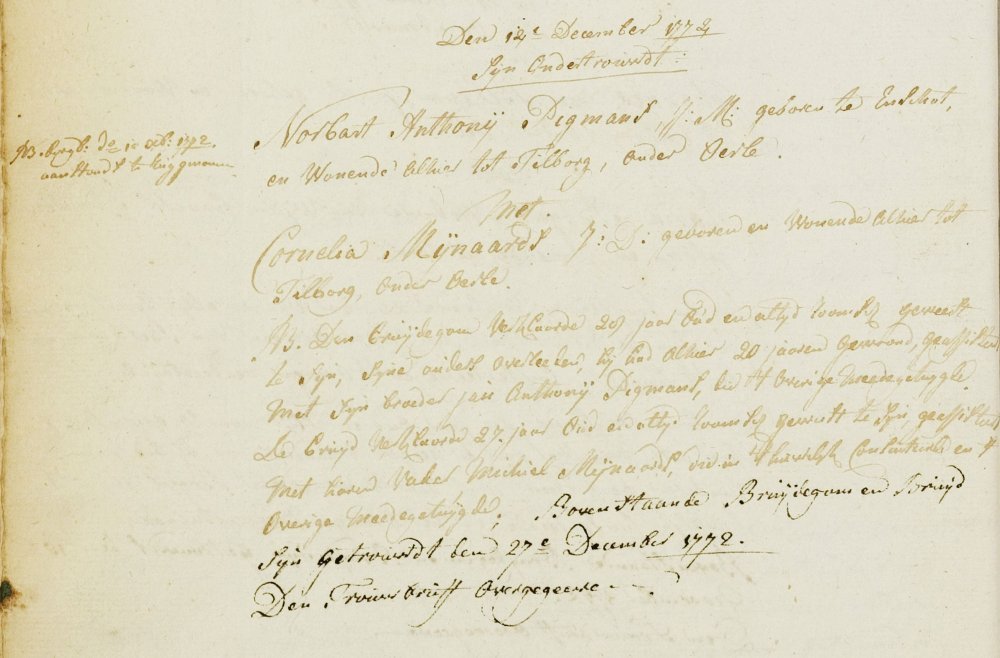 Den 12e December 1772
Syn Ondertrouwdt:
Norbart Anthonij Pigmans, J: M: geboren te Enschot,
en Wonende Alhier tot Tilborg, onder Oerle.
Met.
Cornelia Mijnaards J: D: geboren en Wonende Alhier tot
Tilborg, onder Oerle.
NB. Den Bruijdegom Verklaarde 28 jaar Oud en altyd rooms geweest
te Syn, Syne ouders overleeden, hij Oud Alhier 20 jaaren gewoond, geassisteerd
Met Syn broeder jan Anthonij Pigmans, die 't Overige Meedegetuygde.
De Bruyd Verklaarde 27. jaar Oud en altyd rooms geweest te Syn, geassisteerd
Met haren Vader Michiel Mijnaards, die in 't huwelyk Consenteerde en 't
Overige Meedegetuygde. Bovenstaande Bruijdegom en Bruijd
Syn getrouwdt den 27e December 1772.
Den Trouwbrieff Overgegeeve
NB. 1772.
aan